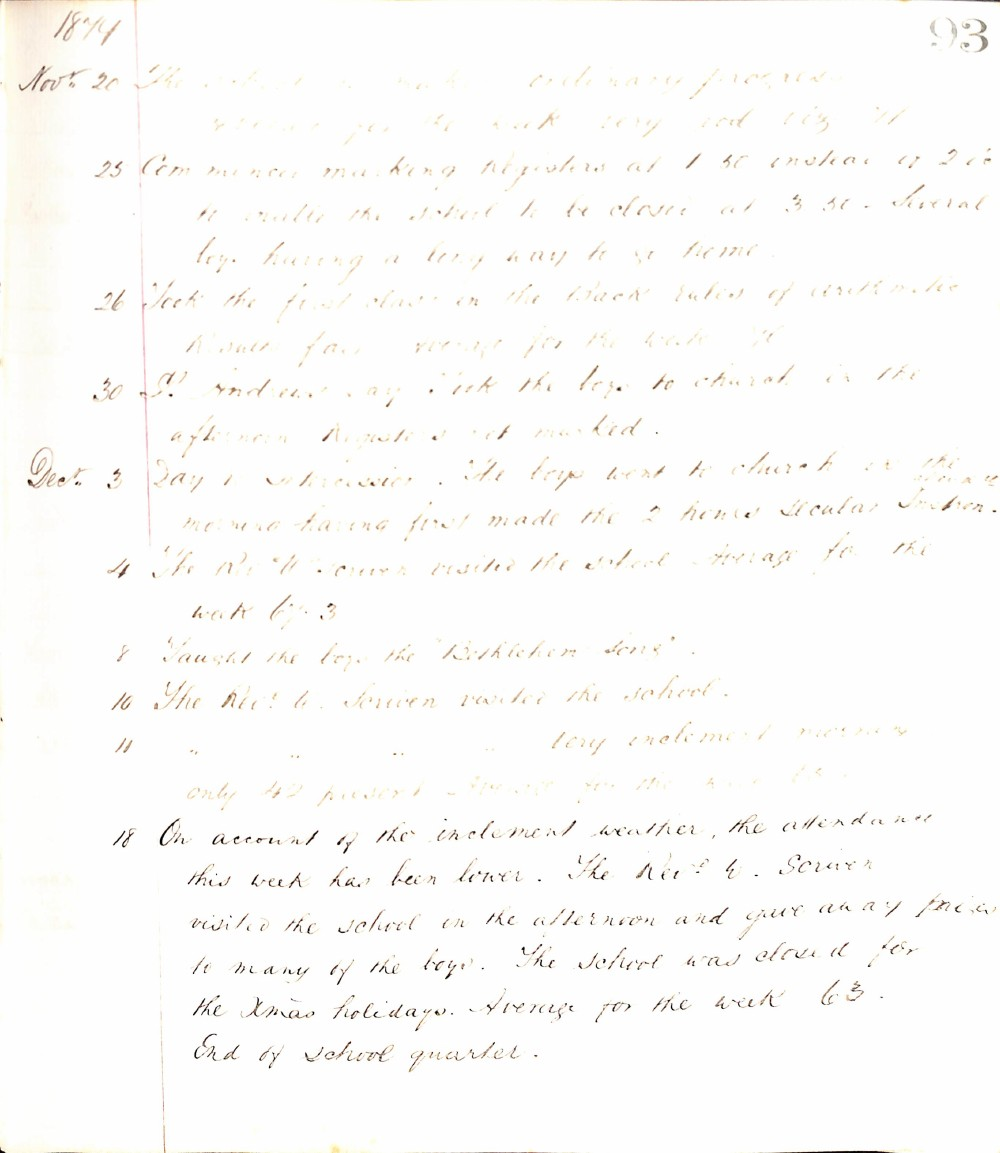 1874
93
Novr 20 The school is making ordinary progress
for the week very
25 Commenced marking Registers at 1 30 instead of 2
to enable the school to be closed at 3 30. Several
boys having a long way to go home.
26 Took the first class in the Back rules of arithmetic
Results fair average for the week
30 St Andrews Day Took the boys to church in the
afternoon Registers not marked.
Decr 3 Day of Intercession. The boys went to church in the
morning having first made the 2 hours secular Instron.
4 The Revd W Scriven visited the school Average for the
week 67.3
8 Taught the boys the "Bethlehem Song".
10 The Revd W. Scriven visited the school.
11 " " " " Very inclement morning
only 42 present Average for the week
18 On account of the inclement weather, the attendance
this week has been lower. The Revd W. Scriven
visited the school in the afternoon and gave away
to many of the boys. The school was closed for
the Xmas holidays. Average for the week 63.
End of school quarter.